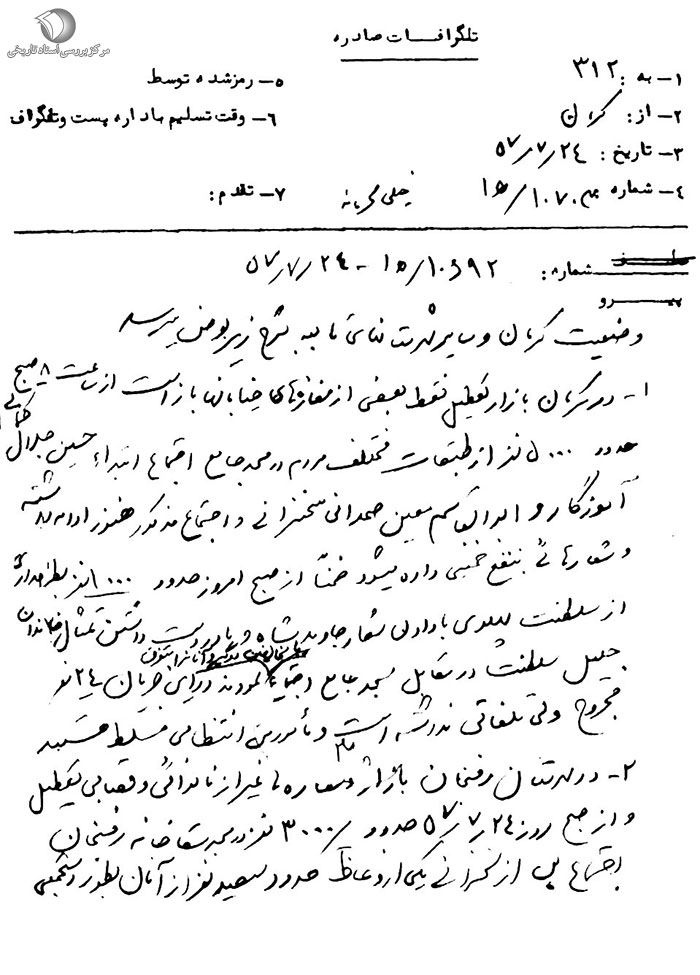 مرکز بررسی اسناد تاریخی
تلگرافات صادره
۱- به : ۳۱۲
۲- از: کرمان
۳- تاریخ : ۵۷/۷/۲۴
۴- شماره ۱۵/۱۰۷۰۰
۵- رمز شده توسط
۶- وقت تسلیم به اداره پست و تلگراف
۷- تقدم: خیلی محرمانه
شماره: ۱۵/۱۰۶۹۲ - ۵۷/۷/۲۴
پیرو
وضعیت کرمان و سایر شهرستانهای تابعه بشرح زیر بعرض میرسد
۱- در کرمان بازار تعطیل فقط بعضی از مغازه‌های خیابانها باز است از ساعت ۸ صبح
حدود ۵۰۰۰ نفر از طبقات مختلف مردم در مسجد جامع اجتماع ابتداء حسین جلال کمالی
آموزگار و ابوالقاسم معین صمدانی سخنرانی و اجتماع مذکور هنوز ادامه داشته
و شعارهائی بنفع خمینی داده میشود ضمناً از صبح امروز حدود ۱۰۰۰ نفر بطرفداری
از سلطنت پهلوی با دادن شعار جاوید شاه و با در دست داشتن تمثال خاندان
جلیل سلطنت در مقابل مسجد جامع اجتماع نمودند در این جریان ۲۴ نفر
مجروح ولی تلفاتی نداشته است و مأمورین انتظامی مسلط هستند
۲- در شهرستان رفسنجان بازار و مغازه ها غیر از نانوائی و قصابی تعطیل
و از صبح روز ۵۷/۷/۲۴ حدود ۳۰۰۰ نفر در مسجد سقاخانه رفسنجان
اجتماع پس از سخنرانی یکی از وعاظ حدود سیصد نفر از آنان بطور دستجمعی